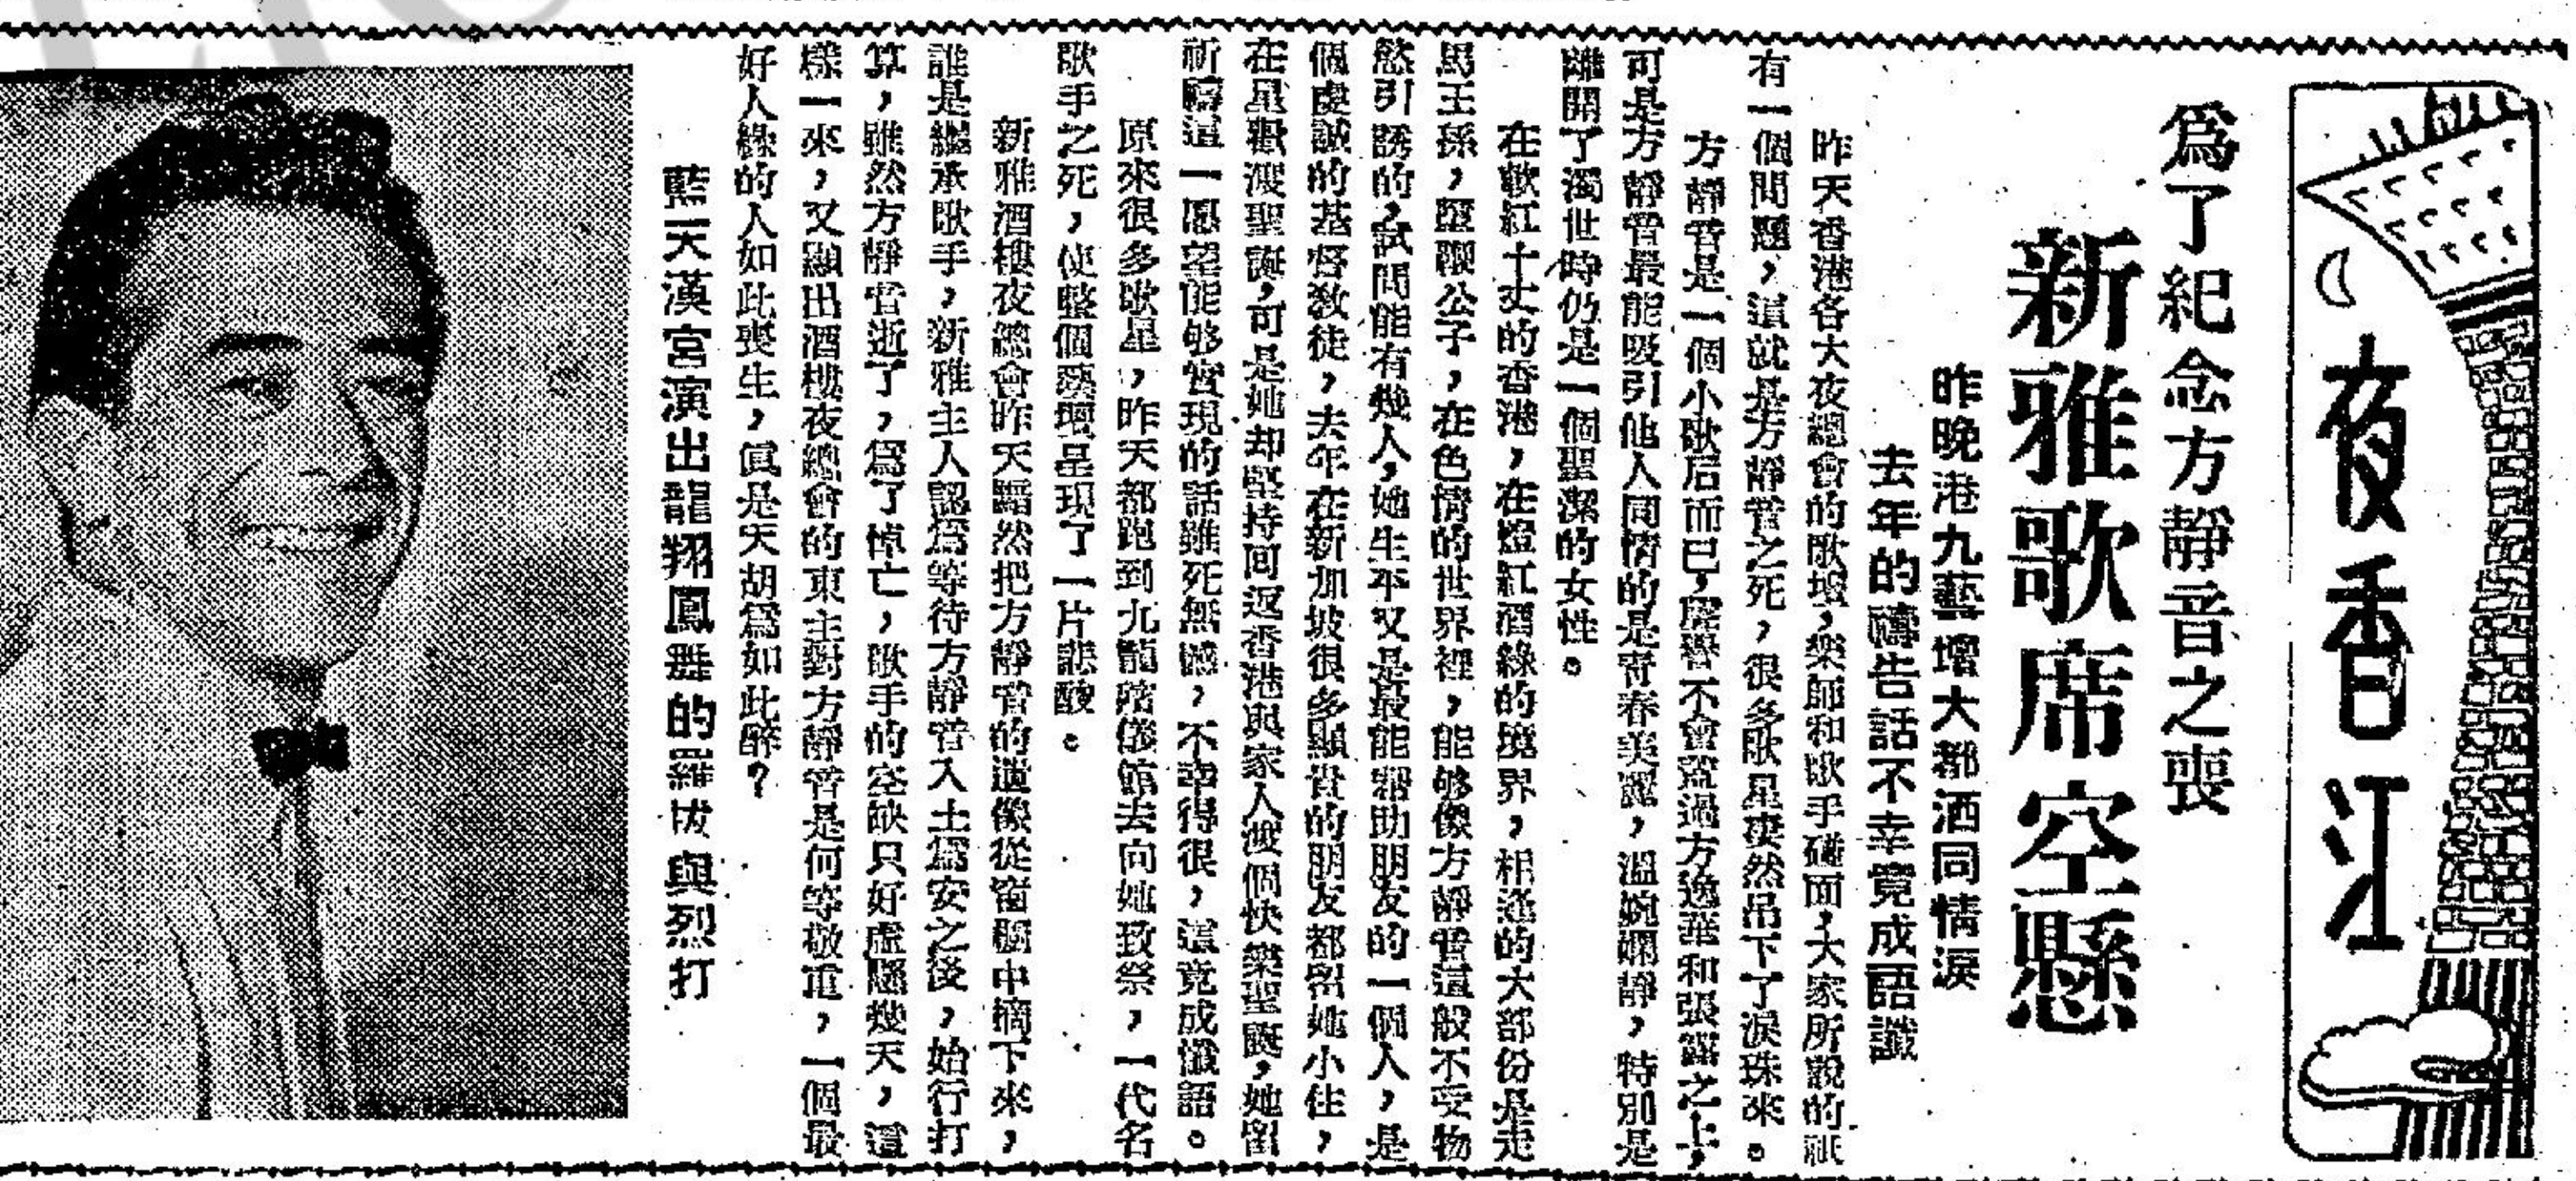 夜香江
為了紀念方靜音之喪
新雅歌席空懸
昨晚港九藝壇大都洒同情淚
去年的禱告話不幸竟成語讖
昨天香港各大夜總會的歌壇，樂師和歌手碰面，大家所說的祇
有一個問題，這就是方靜音之死，很多歌星凄然吊下了淚珠來。
方靜音是一個小歌后而已，聲譽不會蓋過方逸華和張露之上，
可是方靜音最能吸引他人同情的是青春美麗，溫婉嫻靜，特別是
離開了濁世時仍是一個聖潔的女性。
在軟紅十丈的香港，在燈紅酒綠的境界，相逢的大部份是走
馬王孫，墮鞭公子，在色情的世界裡，能够像方靜音這般不受物
慾引誘的，試問能有幾人，她生平又是最能帮助朋友的一個人，是
個虔誠的基督教徒，去年在新加坡很多顯貴的朋友都留她小住，
在星歡渡聖誕，可是她却堅持回返香港與家人渡個快樂聖誕，她留
祈禱這一愿望能够實現的話雖死無憾，不幸得很，這竟成讖語。
原來很多歌星，昨天都跑到九龍殯儀館去向她致祭，一代名
歌手之死，使整個藝壇呈現了一片悲酸。
新雅酒樓夜總會昨天黯然把方靜音的遺像從窗櫥中摘下來，
誰是繼承歌手，新雅主人認為等待方靜音入土為安之後，始行打
算，雖然方靜音逝了，為了悼亡，歌手的空缺只好虛懸幾天，這
樣一來，又顯出酒樓夜總會的東主對方靜音是何等敬重，一個最
好人緣的人如此喪生，眞是天胡為如此醉？
藍天漢宮演出龍翔鳳舞的羅拔與烈打